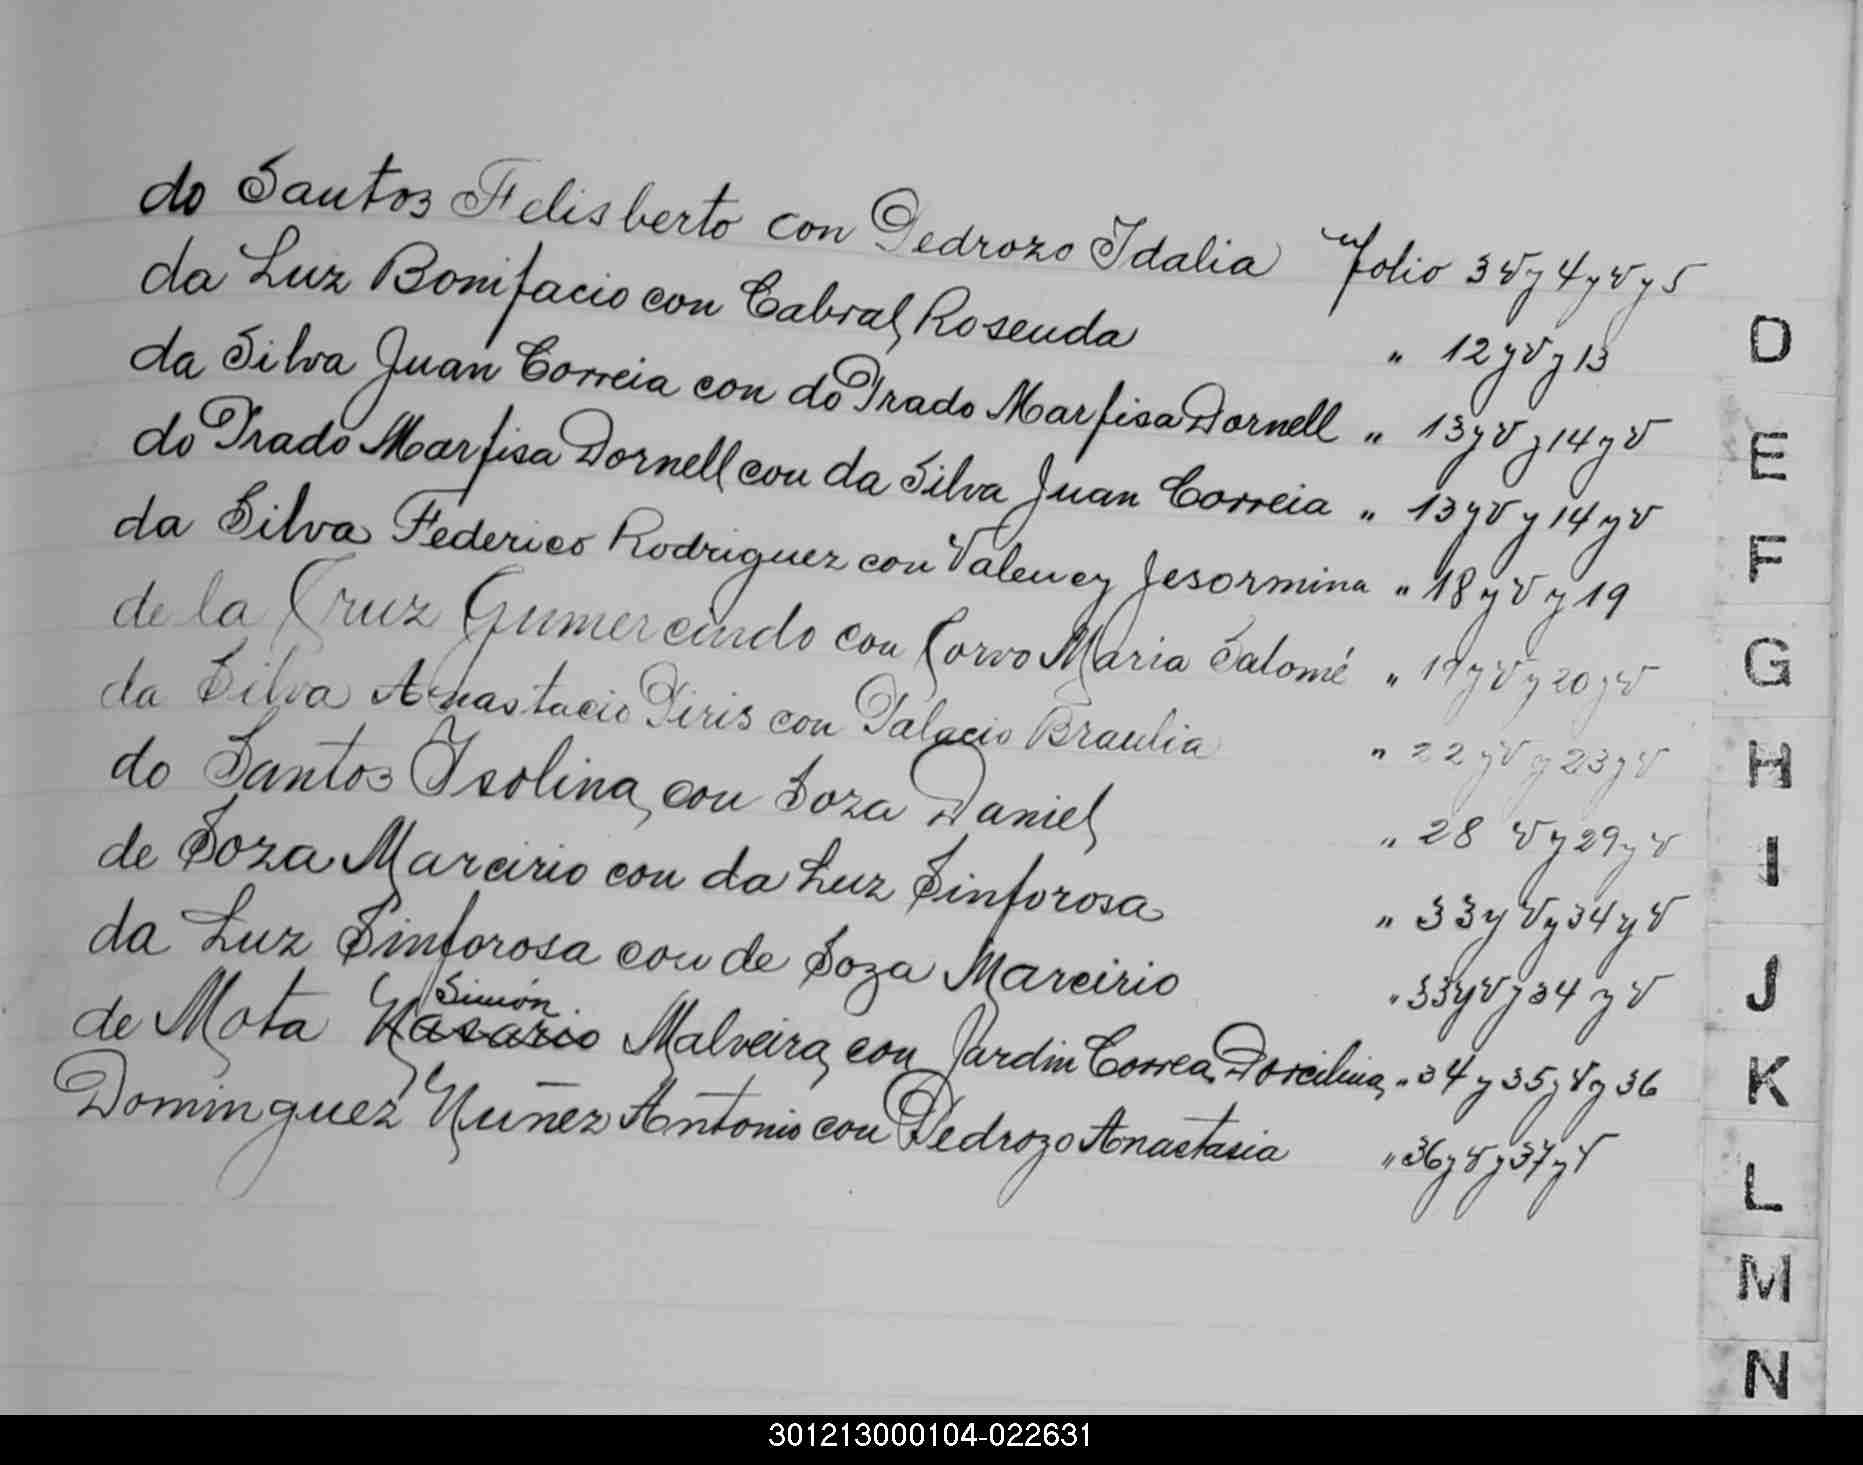 do Santos Felisberto con Pedrozo Idalia Folio 3 v y 4 y v y 5
da Luz Bonifacio con Cabral, Rosenda " 12 y v y 13
da Silva Juan Correia con do Prado Marfisa Dornell " 13 y v y 14 y v
do Prado Marfisa Dornell con da Silva Juan Correia " 13 y v y 14 y v
da Silva Federico Rodriguez con Valency Jesormina " 18 y v y 19
de la Cruz Gumercindo con Corvo Maria Salomé " 19 y v y 20 y v
da Silva Anastacio Piris con Palacio Braulia " 22 y v y 23 y v
do Santos Isolina, con Soza Daniel " 28 v y 29 y v
de Soza Marcirio con da Luz Sinforosa " 33 y v y 34 y v
da Luz Sinforosa con de Soza Marcirio " 33 y v y 34 y v
Simón
de Mota Nasario Malveira, con Jardin Correa, Dorcilina, " 34 y 35 y v y 36
Dominguez Nuñez Antonio con Pedrozo Anastasia " 36 y v y 37 y v
D
E
F
G
H
I
J
K
L
M
N
301213000104-022631